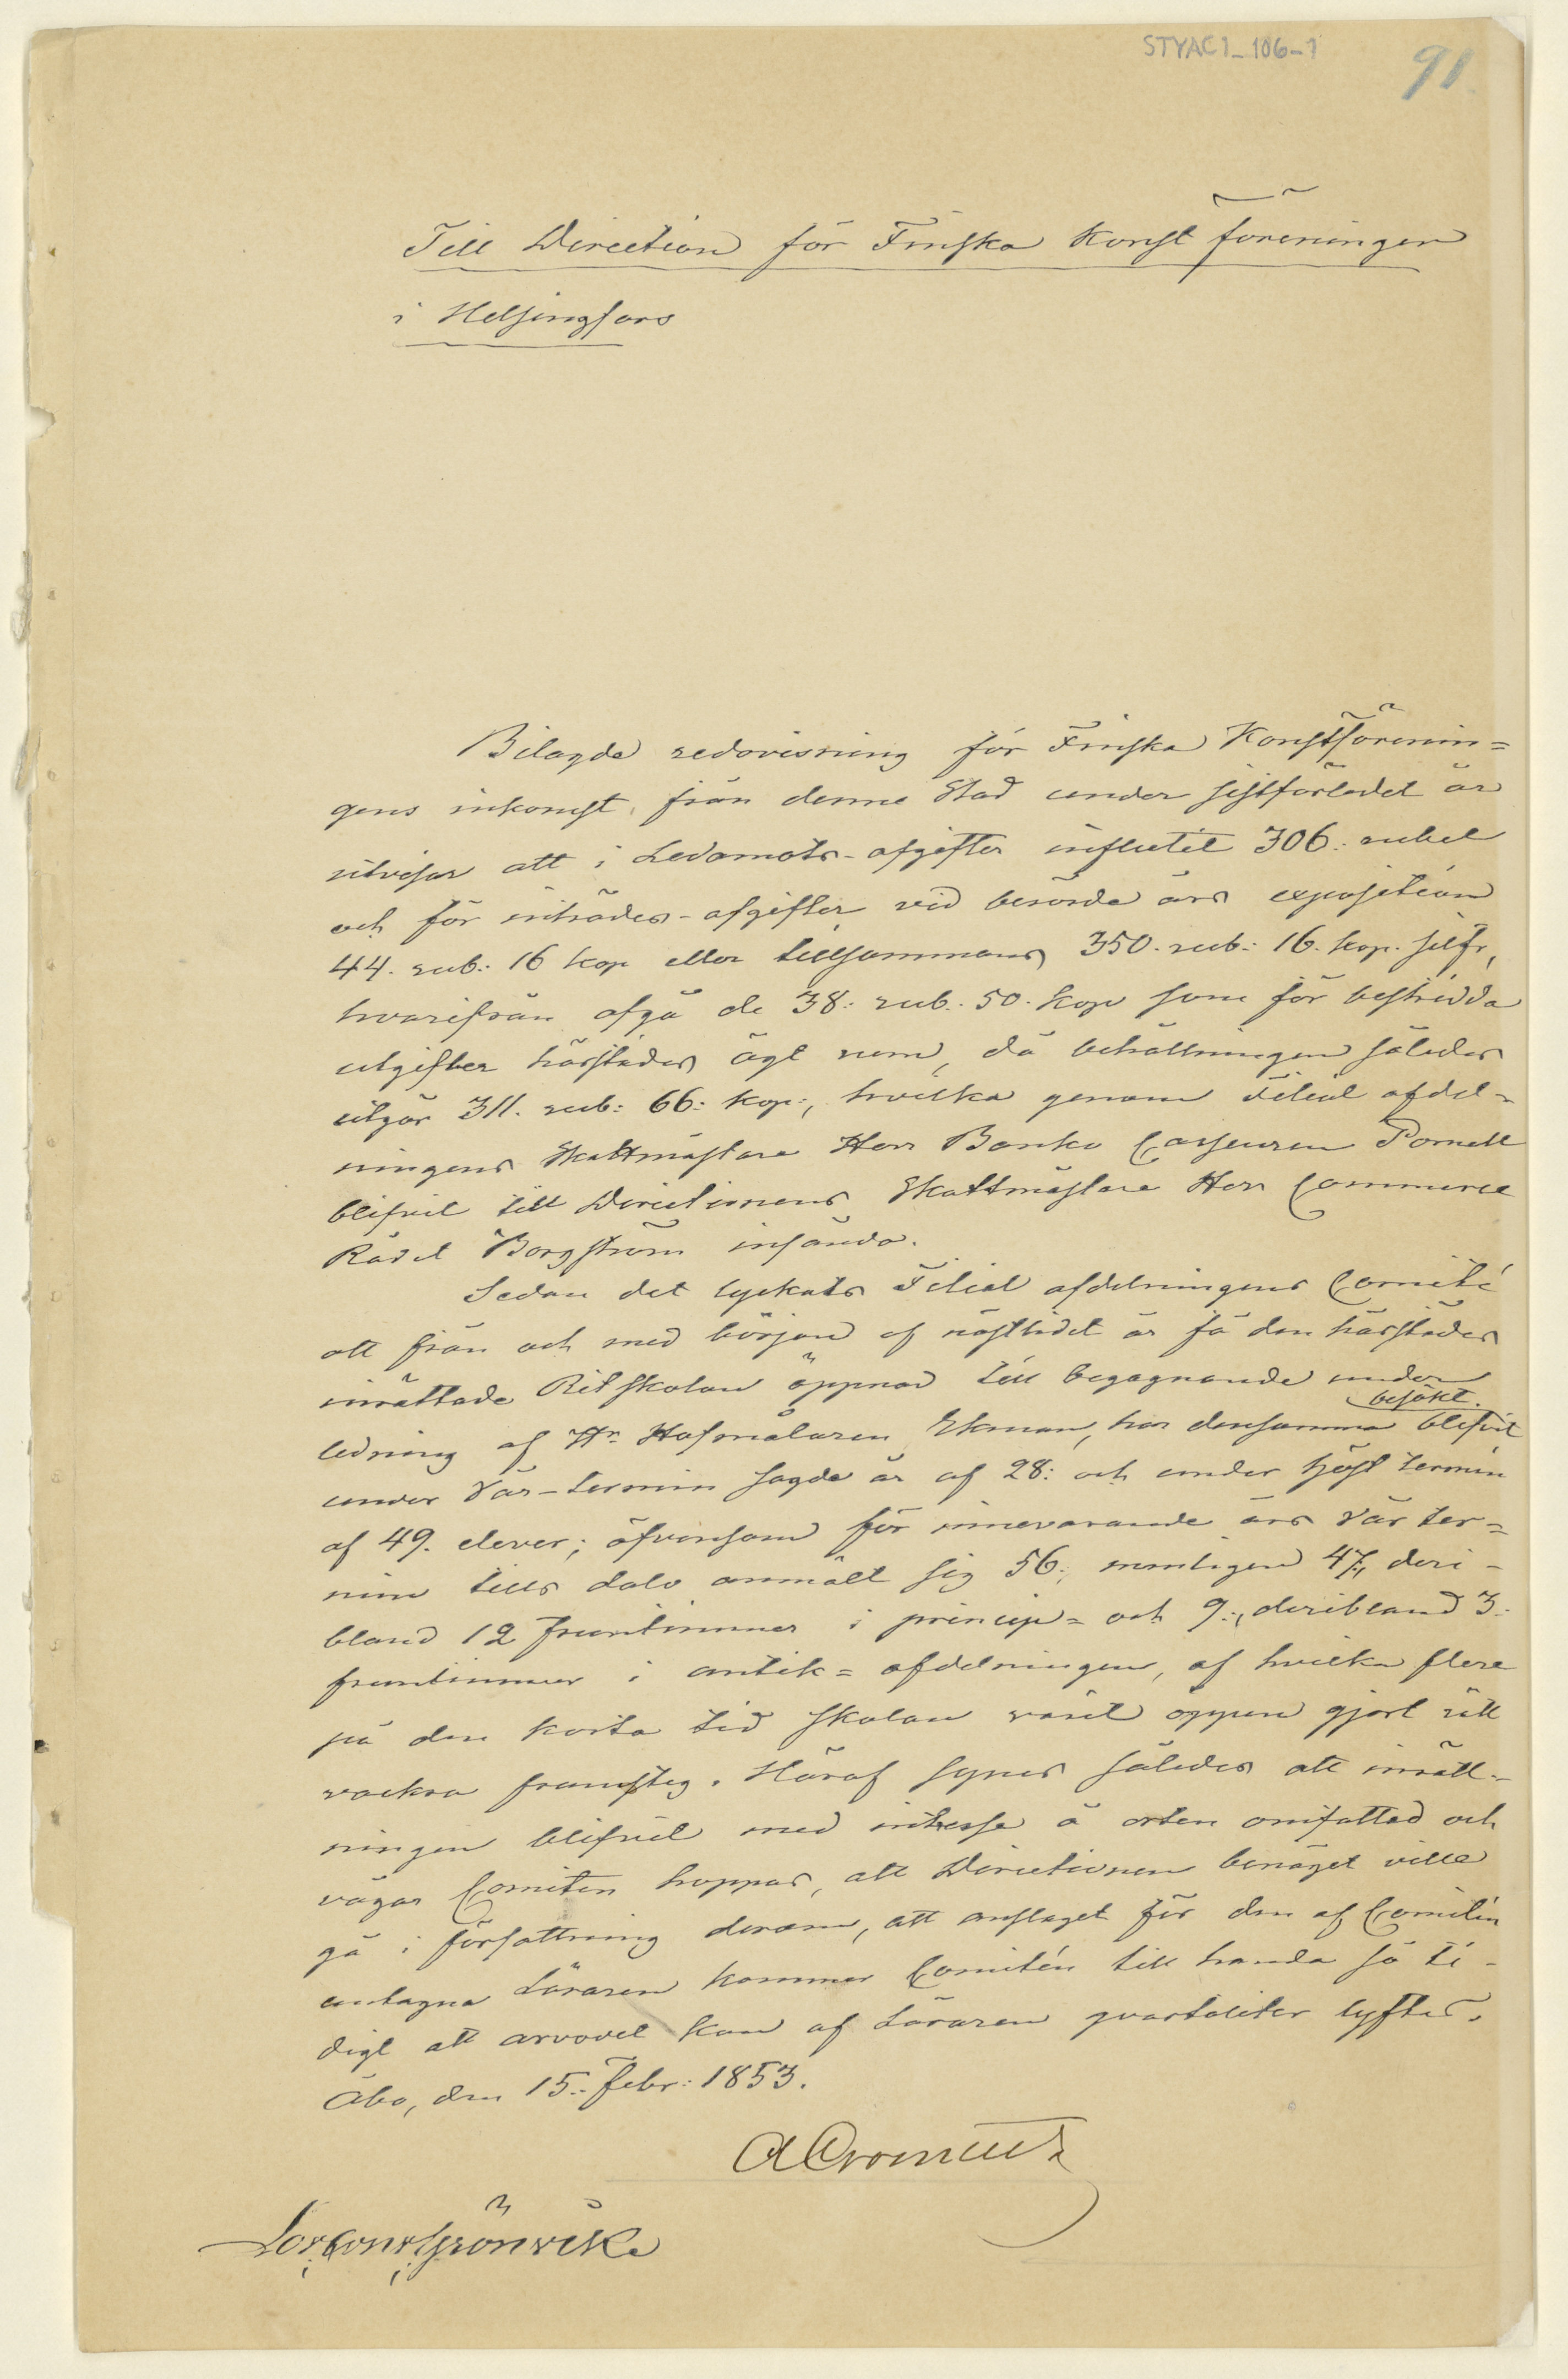 STYAC1_106-1
91.
Till Direction för Finska Konstföreningen
i Helsingfors
Bilagde redovisning för Finska Konstförenin=
gens inkomst, från denne Stad under sistförledet år
utvisar att i Ledamots-afgifter influtit 306: rubel
och för inträdes-afgifter vid berörde års exposition
44. rub: 16 kop eller tillsammans 350. rub: 16. kop. silfr,
hvarifrån afgå de 38: rub. 50. kop som för bestridda
utgifter härstädes ägt rum, då behållningen således
utgör 311. rub: 66: kop:, hvilka genom Filial afdel=
ningens Skattmästare Herr Banko Casseuren Pomell
blifvit till Directionens Skattmästare Herr Commerce
Rådet Borgström insände.
Sedan det lyckats Filial afdelningens Comité
att från och med början af nästlidet år få den härstädes
inrättade Ritskolan öppnad till begagnande under
ledning af Hr Hofmålaren Ekman, har densamma blifvit
besökt.
under Vår-termin sagde år af 28: och under Höst termin
af 49. elever; äfvensom för innevarande års Vår ter=
min tills dato anmält sig 56:, nemligen 47:, deri-
bland 12 fruntimmer i princip= och 9:, deribland 3:
fruntimmer i antik= afdelningen, af hvilka flere
på den korta tid skolan varit öppen gjort rätt
vackra framsteg. Häraf synes således att inrätt=
ningen blifvit med intresse å orten omfattad och
vågar Comitén hoppas, att Directionen benäget ville
gå i författning derom, att anslaget för den af Comitén
antagna Läraren kommer Comitén till handa så ti-
digt att arvodet kan af Läraren qvartaliter lyftas.
Åbo, den 15: Febr: 1853.